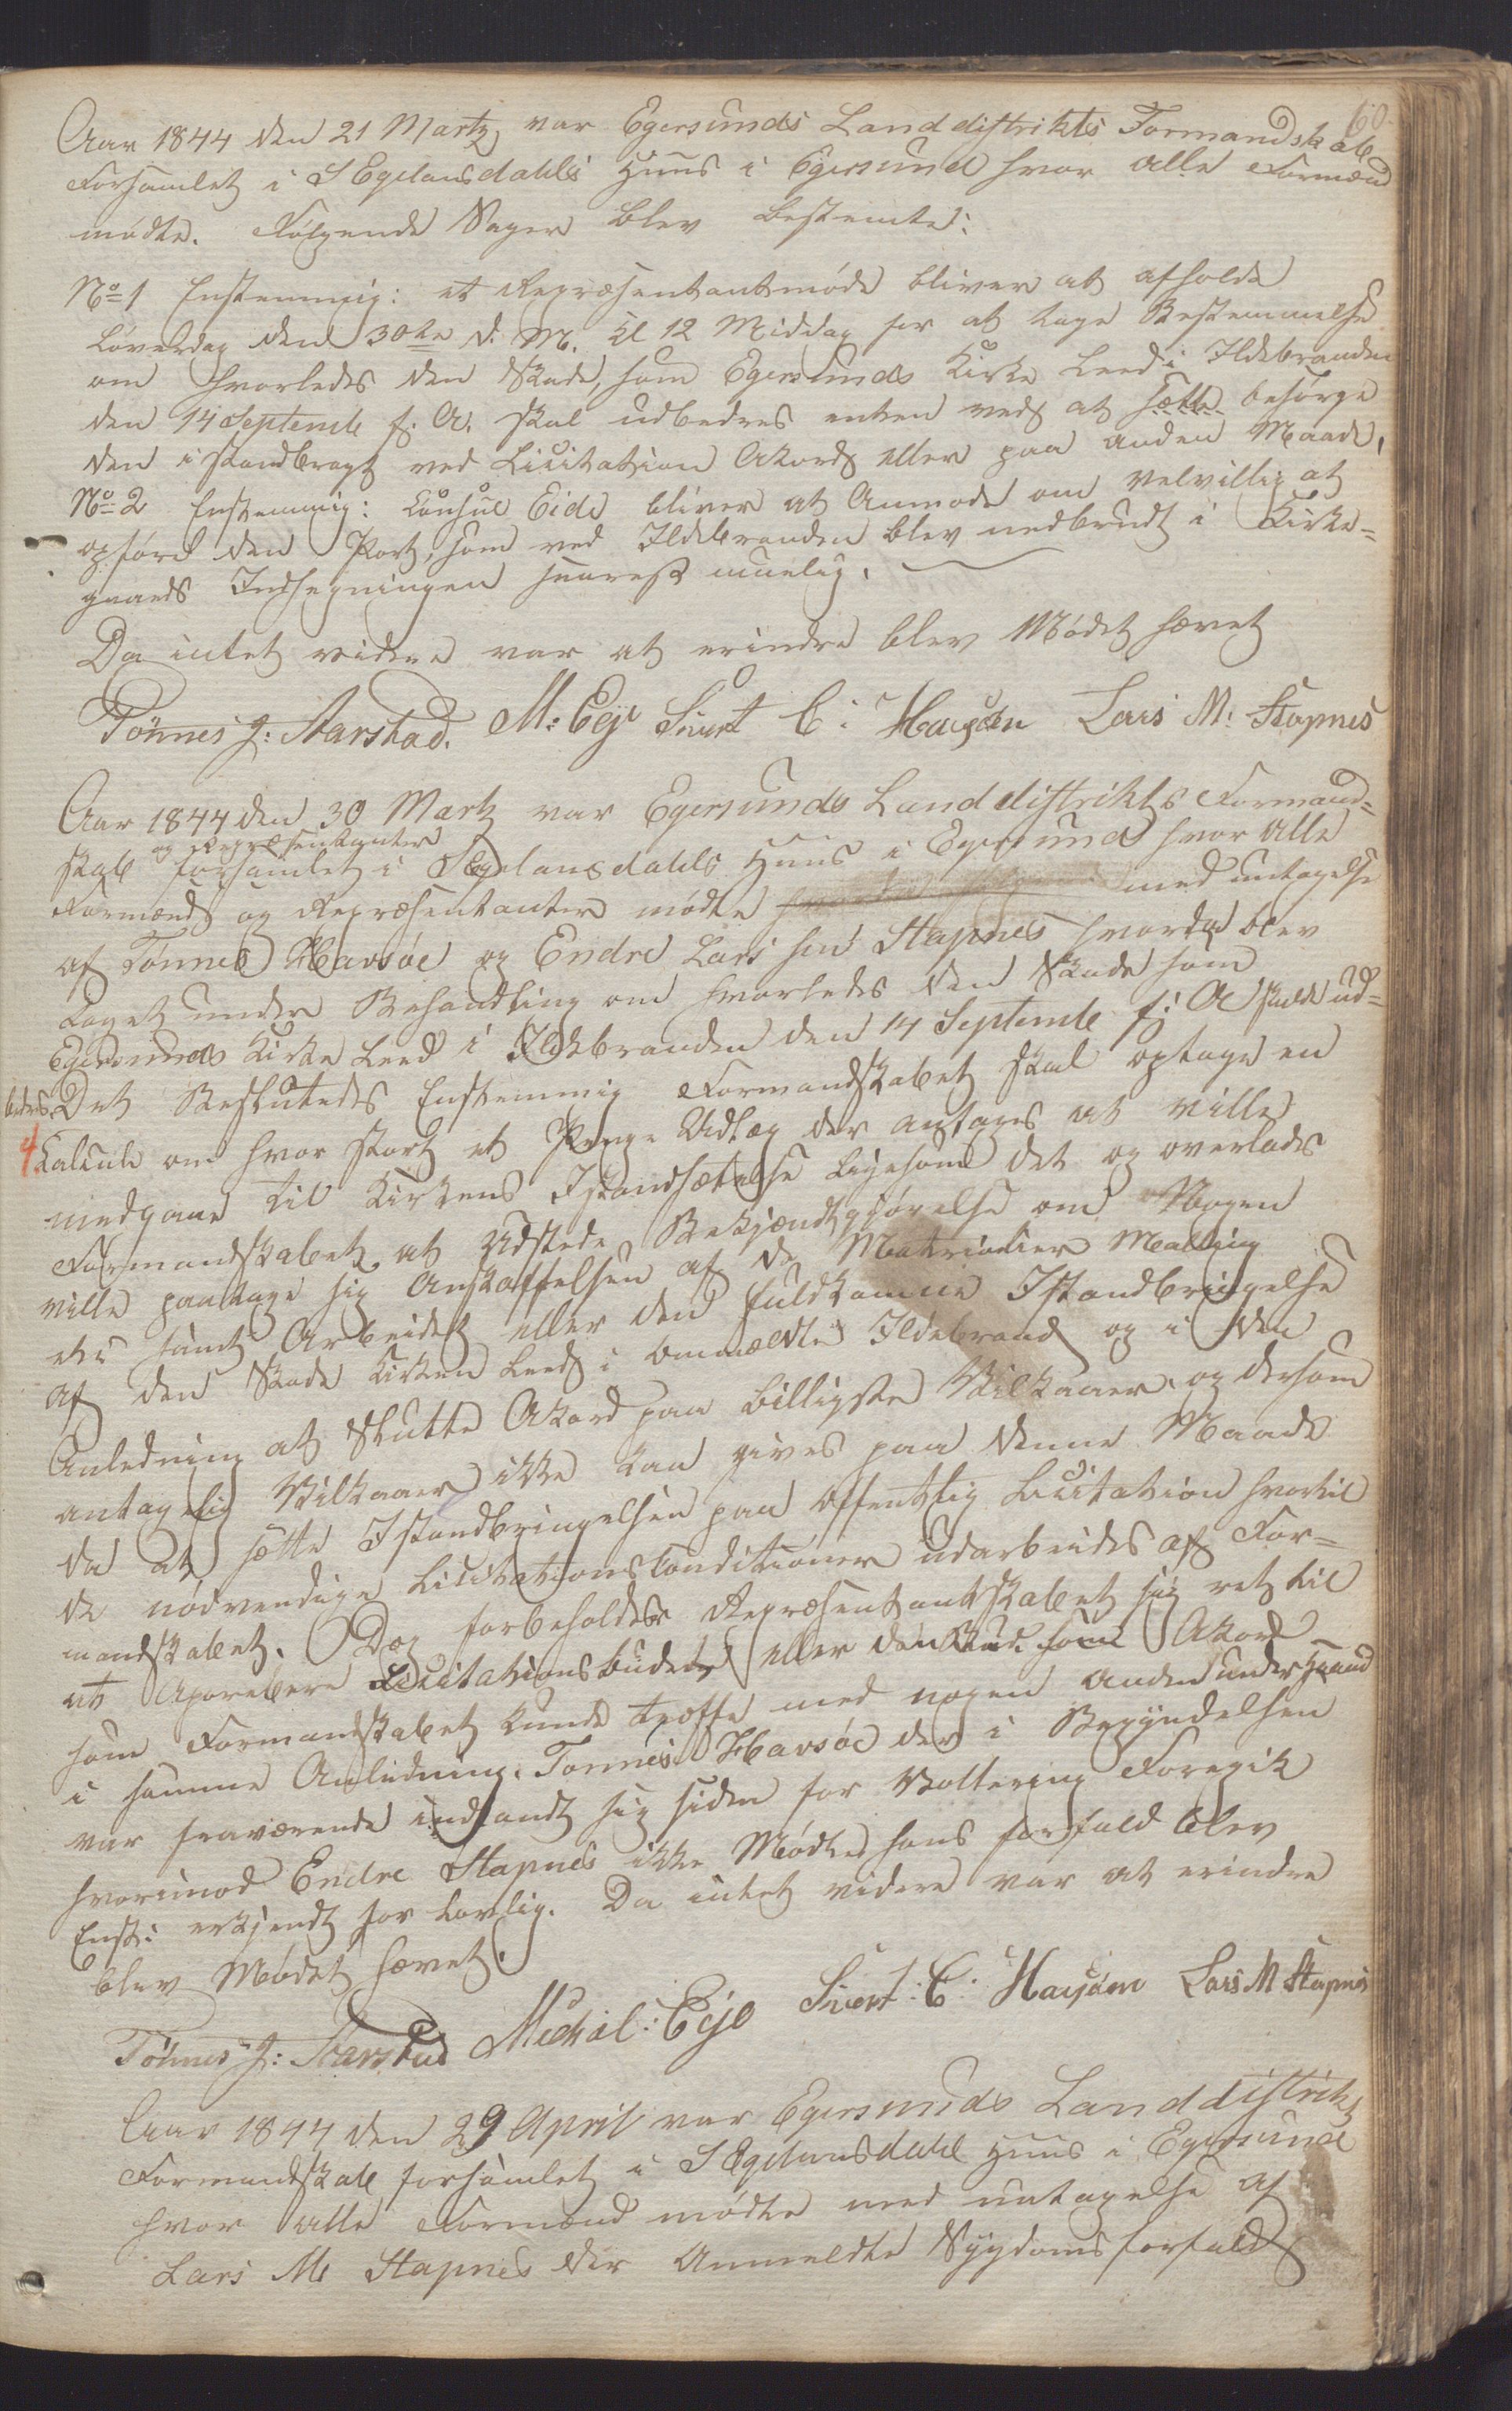 60.
Aar 1844 den 21 Martz var Egersunds Landdistrikts Formandskab
forsamlet i S Egelansdahls Huus i Egersund hvor alle Formænd
mødte. Følgende Sager blev bestemte:
No 1 Enstemmig: et Repræsentantmøde bliver at afholde
Løverdag den 30te d. M. Kl 12 Middag for at tage Bestemmelse
om hvorledes den Skade, som Egersunds Kirke Leed i Ildebranden
den 14 Septembr f. A. skal udbedres enten ved at sætte besørge
den istandbragt ved Licitation Akord eller paa anden Maade.
No 2 Enstemmig: Consul Eide bliver at Anmode om velvillig at
opføre den Port, som ved Ildebranden blev nedbrudt i Kirke-
gaards Indhegningen snarest muelig.
Da intet videre var at erindre blev Mødet hævet
Tönnes J: Aarstad. M: Eje Sivert C: Hauden Lars M: Stapnes
Aar 1844 den 30 Martz var Egersunds Landdistrikts Formand-
og Repræsentanter
skab forsamlet i S Egelansdahls Huus i Egersund hvor alle
Formænd og Repræsentanter mødte med untagelse
af Tønnes Havsøe og Endre Lars sen Stapnes hvorda blev
taget under Behandling om hvorledes den Skade som
Egersunds Kirke Leed i Ildebranden den 14 Septembr f: A skulde ud-
bedres. Det Besluttedes Enstemmig Formandskabet skal optage en
Calcule om hvor stort et Penge Udlæg der antages at ville
medgaae til Kirkens Istandsættelse ligesom det og overlades
Formandskabet at udstede Bekjendtgjørelse om Nogen
ville paatage sig Anskaffelsen af de Materialier Maling
etc samt Arbeidet eller den fuldkomne Istandbringelse
af den Skade Kirken Leed i ommældte Ildebrand og i den
Anledning at slutte Akord paa billigste Vilkaar og dersom
antagelig Vilkaar ikke kan gives paa denne Maade
da at sætte Istandbringelsen paa Offentlig Licitation hvortil
de nødvendige Licitationsconditioner udarbeides af For-
mandskabet. Dog forbeholdes Repræsentantskabet sig ret til
at Aprobere Licitationsbudet eller den Akord
som Formandskabet kunde træffe med nogen anden under Haand
i samme Anledning. Tønnes Havsøe der i Begyndelsen
var fraværende indfandt sig siden før Vottering Foregik
hvorimod Endre Stapnes ikke Mødte hans forfald blev
Enst: erkjendt for lovlig. Da intet videre var at erindre
blev Mødet hævet.
Tönnes J: Aarstad Mickal: Eje Sivert: C: Hauden Lars M Stapnes
Aar 1844 den 29 April var Egersunds Landdistrikts
Formandskab forsamlet i S Egelansdahl Huus i Egersund
hvor alle Formænd mødte med untagelse af
Lars M Stapnes der Anmeldte Sygdoms forfald